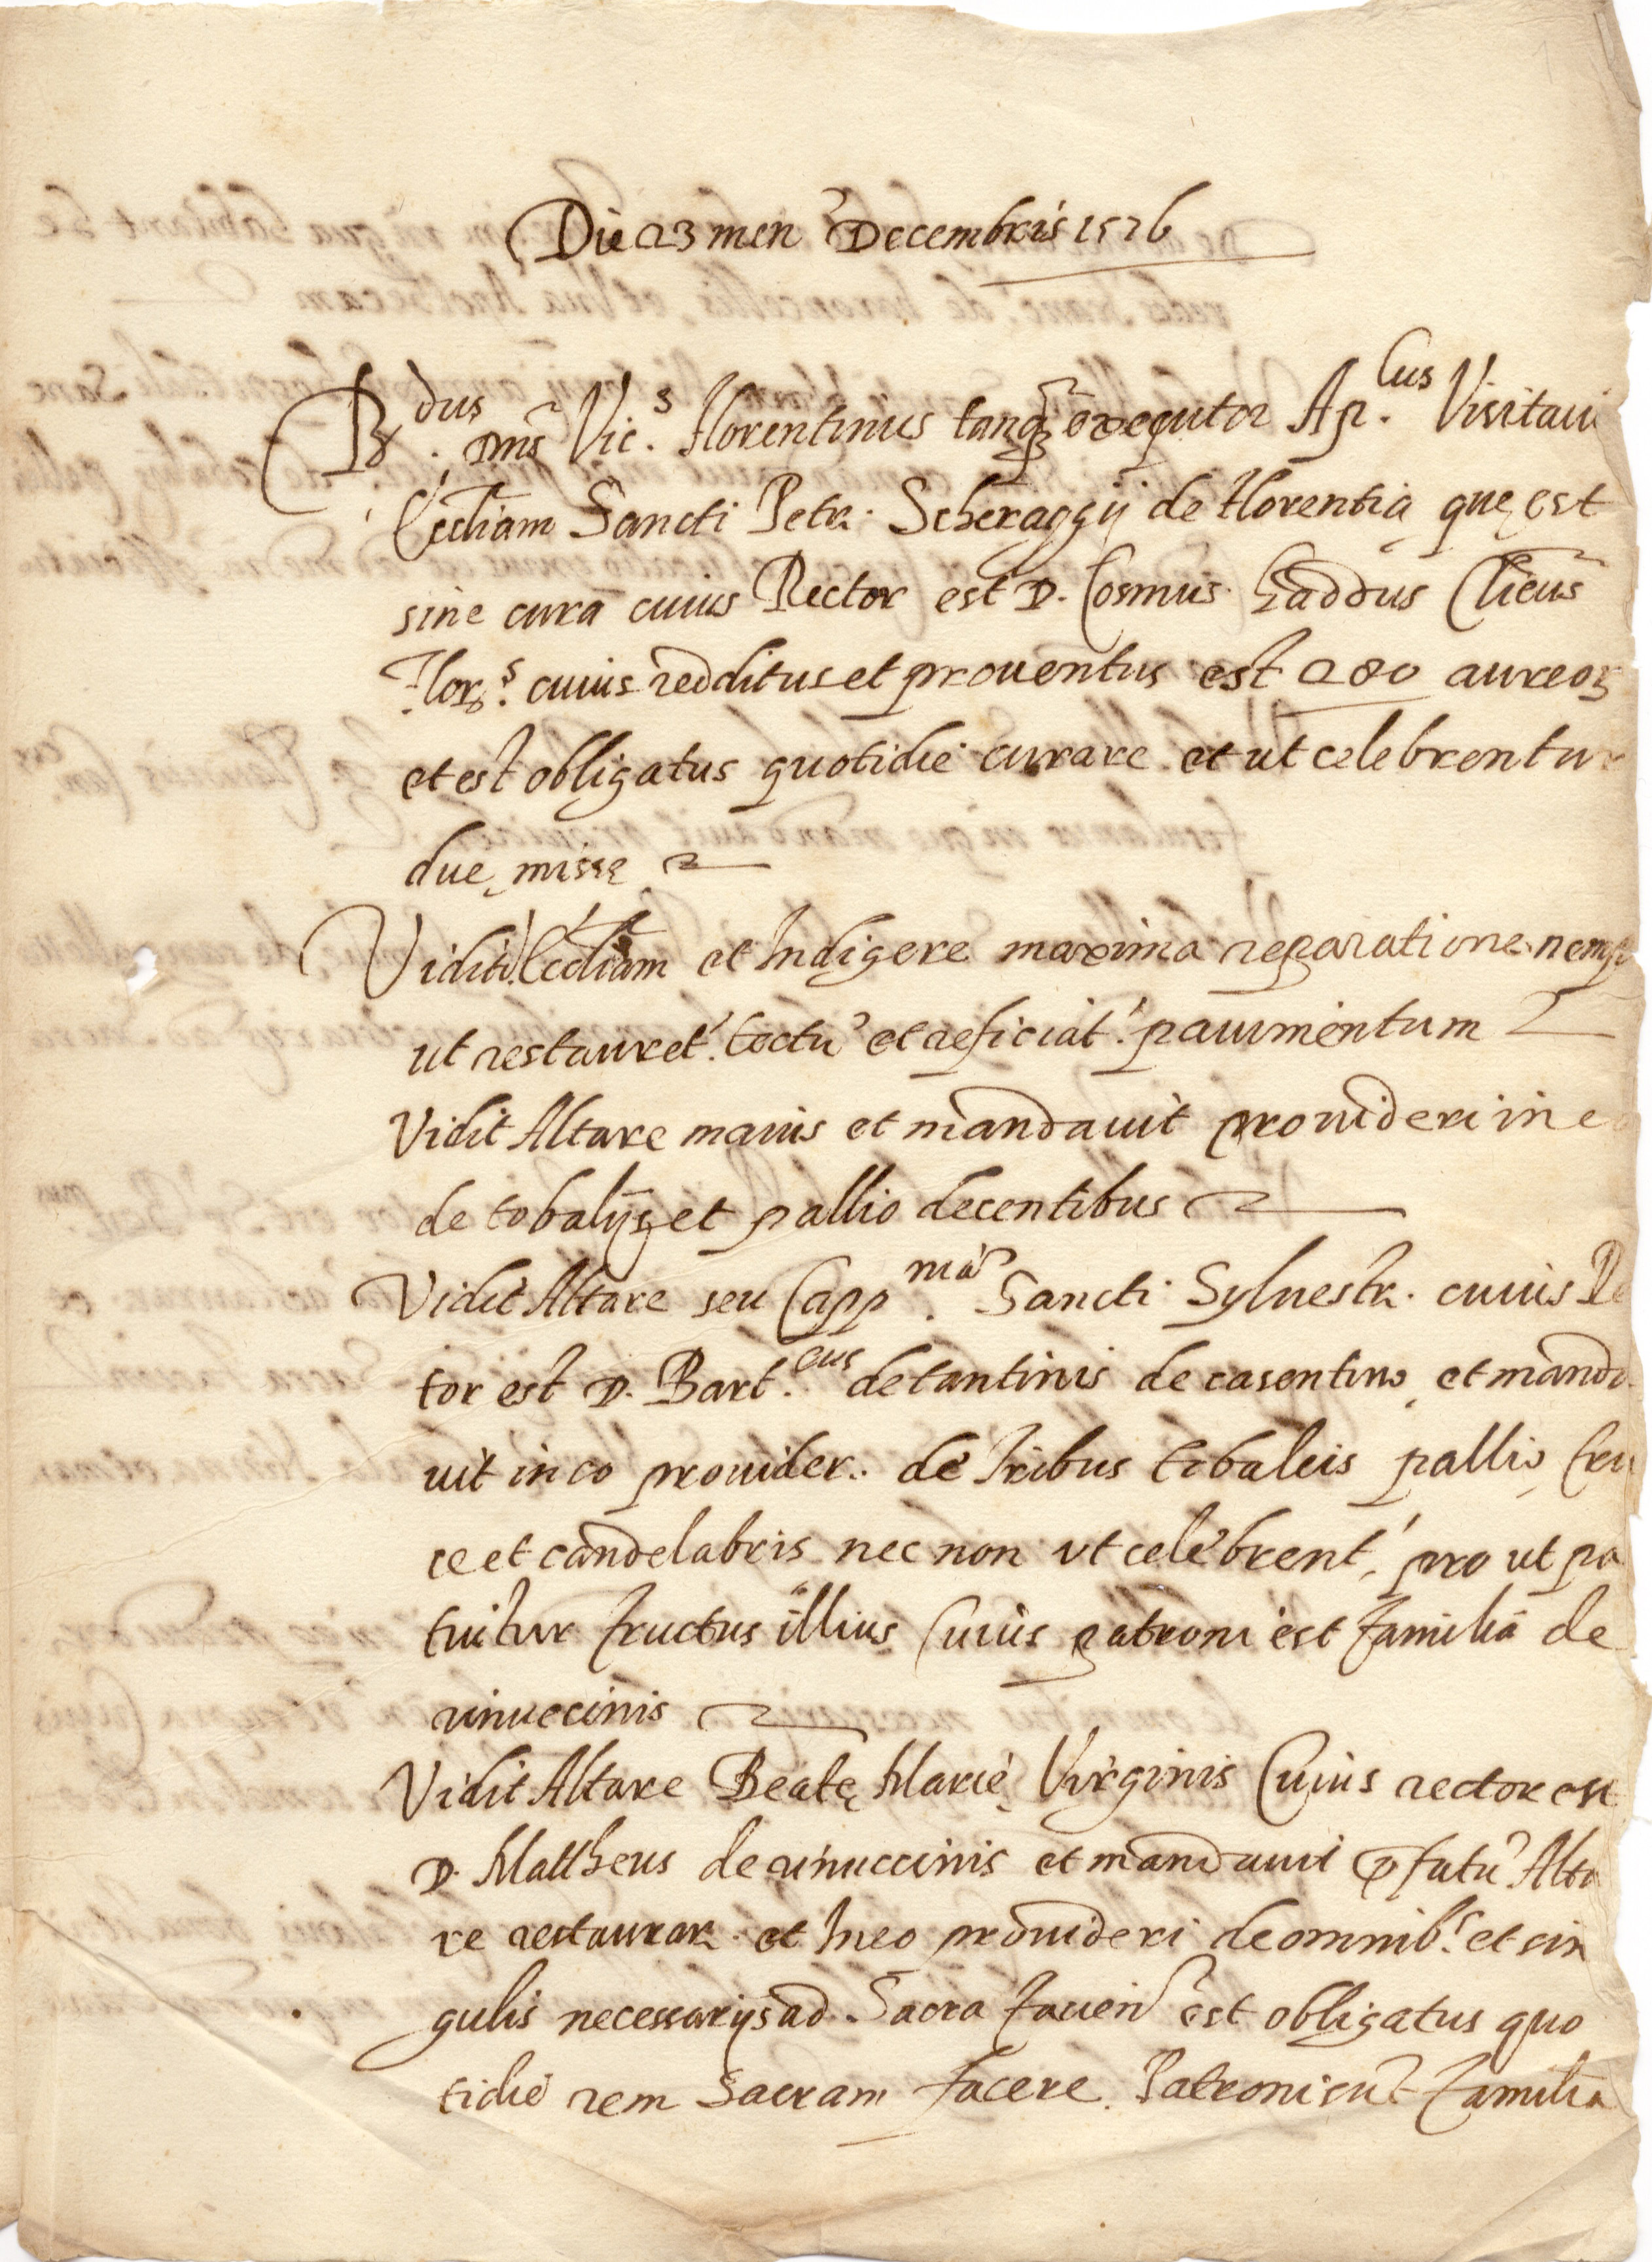 Die 23 men̄ Decembris 1576
R.dus Dn̄s Vic.s Florentinus tanq̄ȝ exequutor Ap.cus Visitaui
Ecctiam Sancti Petri Scheraggij de Florentia quę est
sine cura cuius Rector est D. Cosmus Gaddus Clicus
Flor.s cuius redditus et prouentus est 280 aureoȝ
et est obligatus quotidie curare et ut celebrentur
duę missę
Vidit Eccliam et Indigere maxima reparatione nemp
ut restauret.r tectū et reficiat.r pauimentum
Vidit Altare maius et mandauit prouideri in e
de tobalijs et pallio decentibus
Vidit Altare seu Capp.mā Sancti Syluestri cuius Re
tor est D. Bart.eus de tantinis de casentino et manda
uit in eo prouideri de tribus tobaleis pallio Cru
ce et candelabris nec non vt celebrent.r pro ut pa
tuitur fructus illius Cuius patroni est familia de
rinuccinis
Vidit Altare Beatę Marię Virginis Cuius rector est
D. Mattheus de rinuccinis et mandaui p̄fatū Alta
re restaurari et In eo prouideri de omnib.s et sin
gulis necessarijs ad Sacra facien̄ est obligatus quo
tidie rem Sacram facere Patroni sūt familia